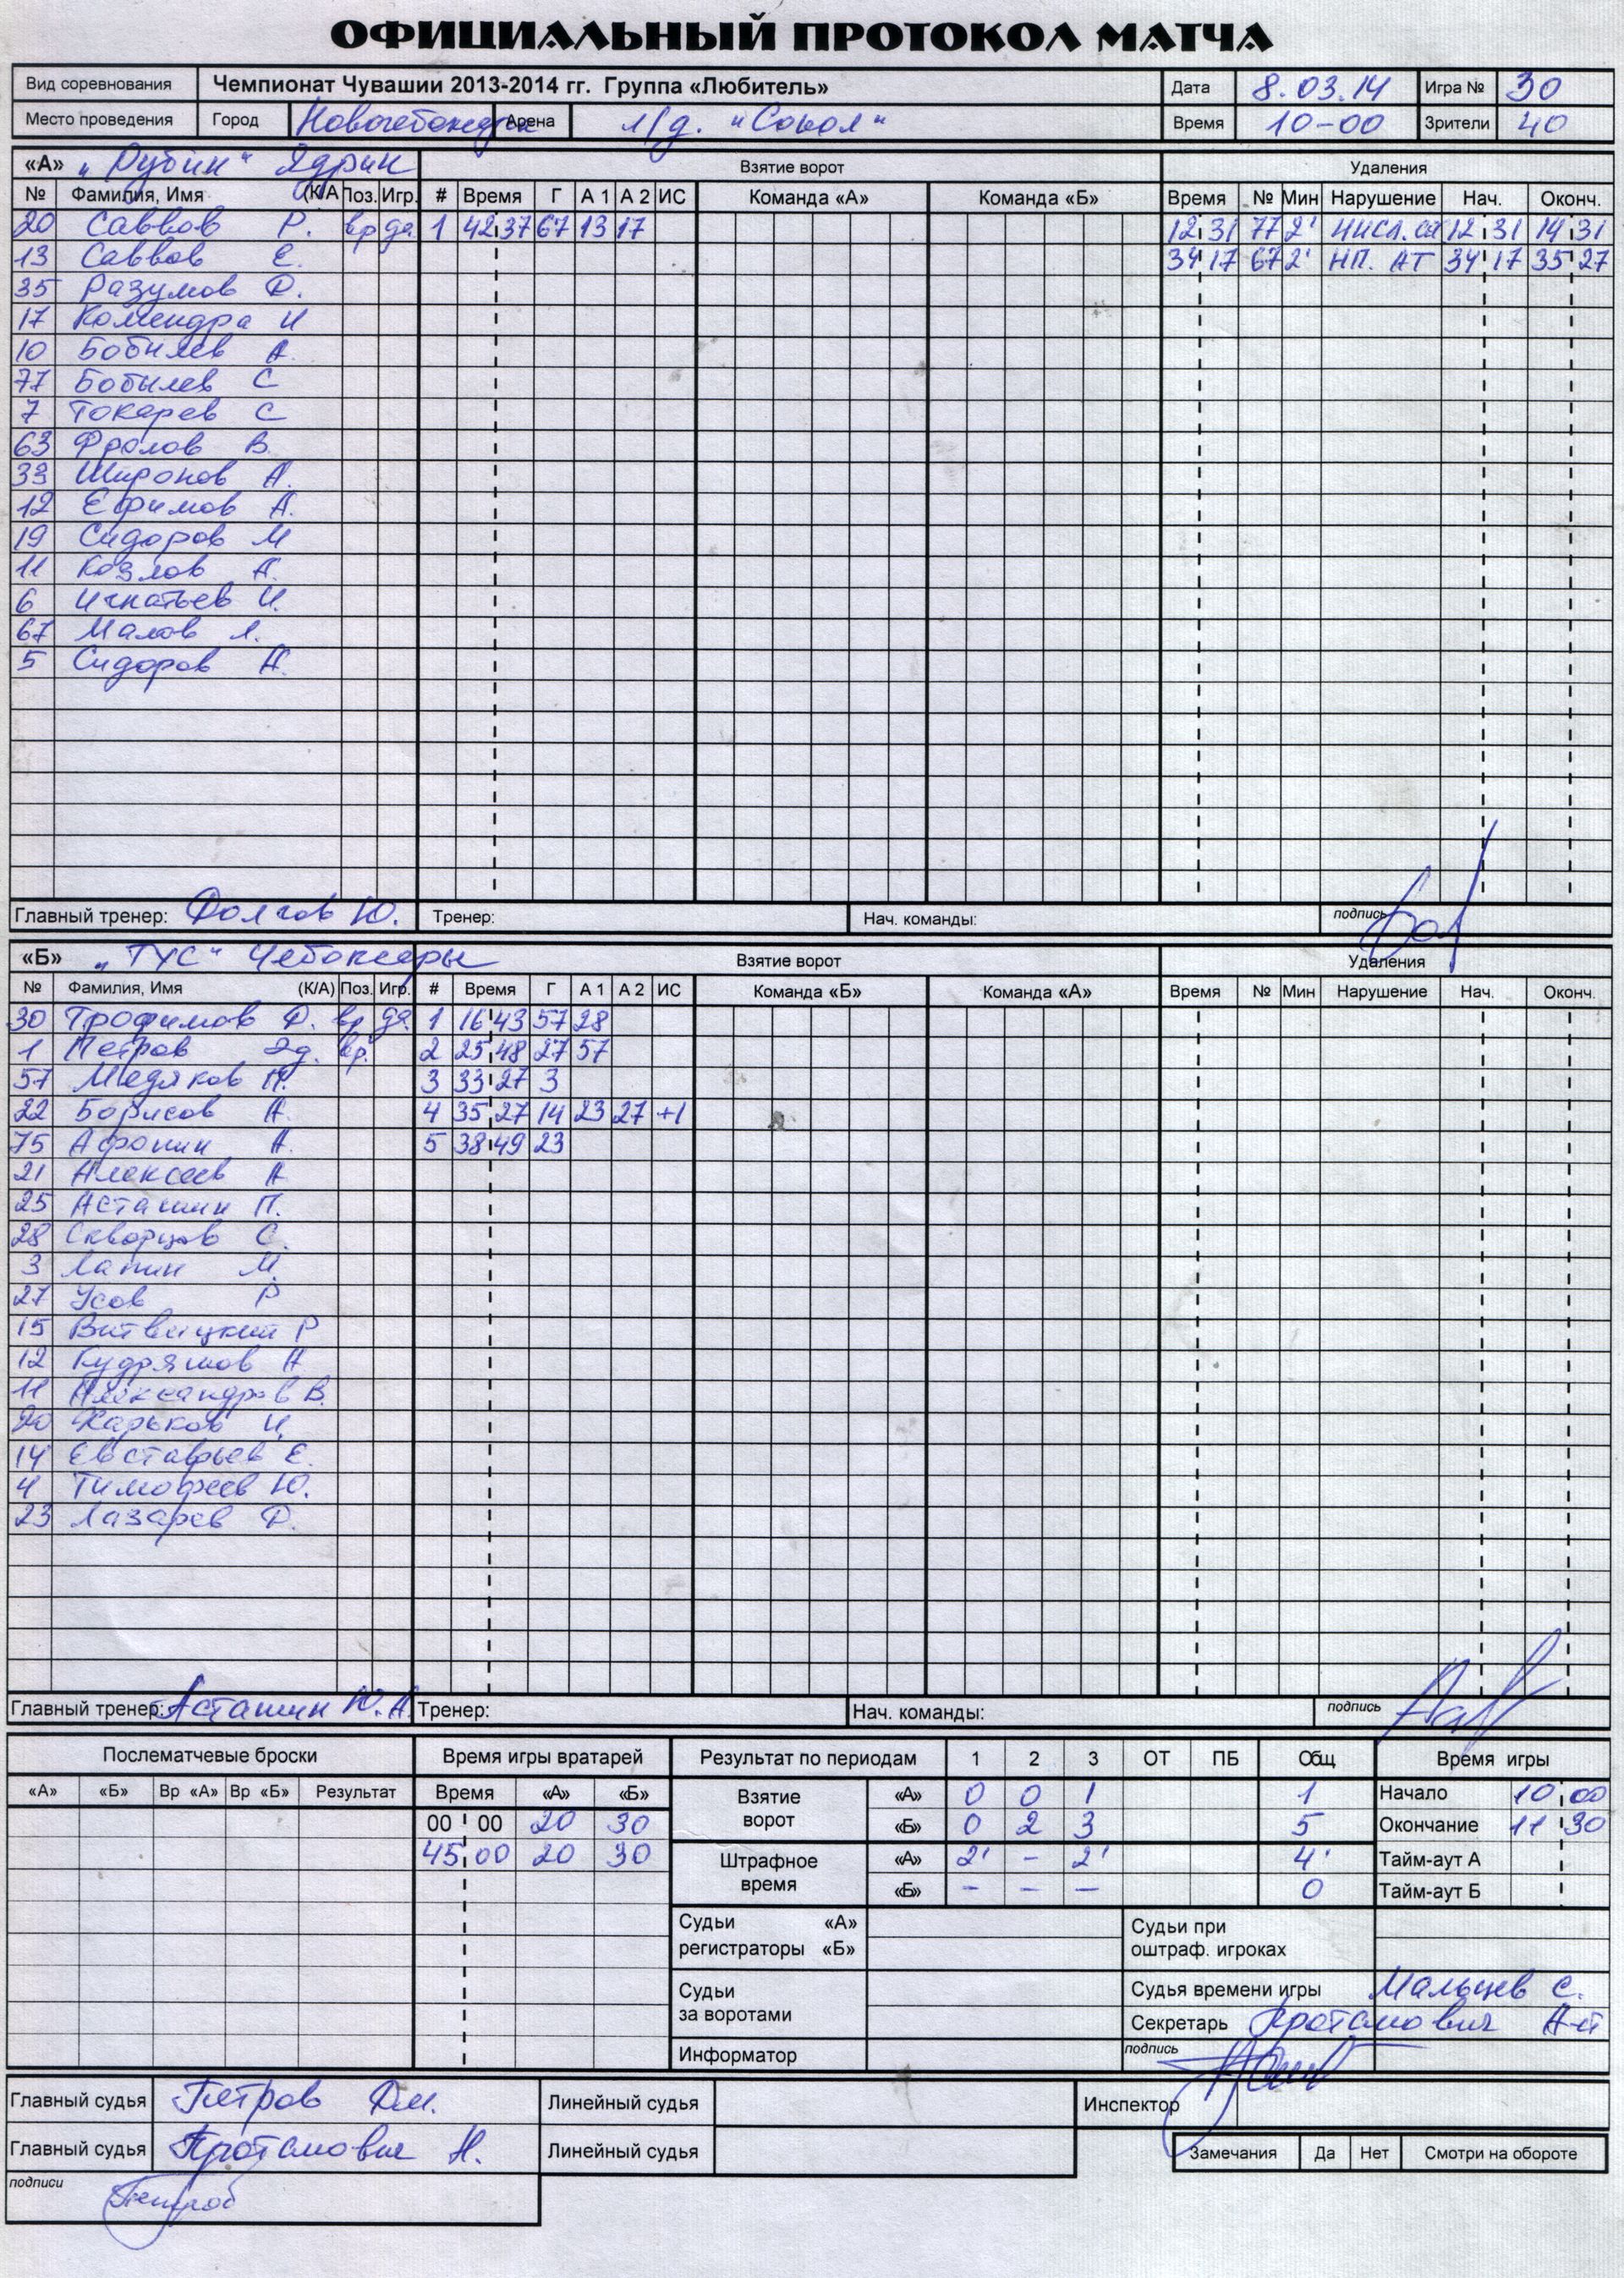 ОФИЦИАЛЬНЫЙ ПРОТОКОЛ МАТЧА
Вид соревнования Чемпионат Чувашии 2013-2014 гг. Группа «Любитель» Дата 8.03.14 Игра № 30
Место проведения Город Новочебоксарск Арена л/д. "Сокол" Время 10-00 Зрители 40
«А» "Рубин" Ядрин Взятие ворот Удаления
№ Фамилия, Имя (К/А) Поз. Игр. # Время Г А 1 А 2 ИС Команда «А» Команда «Б» Время № Мин Нарушение Нач. Оконч.
20 Саввов Р. вр да 1 42 37 67 13 17 12 31 77 2' числ. сос 12 31 14 31
13 Саввов Е. 34 17 67 2' НП. АТ 34 17 35 27
35 Разумов Д.
17 Комендра И
10 Бобылев А.
77 Бобылев С
7 Токарев С
63 Фролов В.
33 Широков А.
12 Ефимов А.
19 Сидоров М
11 Козлов А.
6 Игнатьев И.
67 Малов Л.
5 Сидоров А.
Главный тренер: Долгов Ю. Тренер: Нач. команды: подпись
«Б» "ТУС" Чебоксары Взятие ворот Удаления
№ Фамилия, Имя (К/А) Поз. Игр. # Время Г А 1 А 2 ИС Команда «Б» Команда «А» Время № Мин Нарушение Нач. Оконч.
30 Трофимов Д. вр да 1 16 43 57 28
1 Петров Эд. вр. 2 25 48 27 57
57 Медяков П. 3 33 27 3
22 Борисов А. 4 35 27 14 23 27 +1
75 Афонин А. 5 38 49 23
21 Алексеев А
25 Асташин П.
28 Скворцов С.
3 Лапин М.
27 Усов Р
15 Витвицкий Р
12 Кудряшов А
11 Александров В.
20 Харьков И.
14 Евставьев Е.
4 Тимофеев Ю.
23 Лазарев Д.
Главный тренер: Асташин Ю.А. Тренер: Нач. команды: подпись
Послематчевые броски Время игры вратарей Результат по периодам 1 2 3 ОТ ПБ Общ Время игры
«А» «Б» Вр «А» Вр «Б» Результат Время «А» «Б» Взятие ворот «А» 0 0 1 1 Начало 10 00
00 00 20 30 «Б» 0 2 3 5 Окончание 11 30
45 00 20 30 Штрафное время «А» 2' - 2' 4' Тайм-аут А
«Б» - - - 0 Тайм-аут Б
Судьи регистраторы «А» «Б» Судьи при оштраф. игроках
Судьи за воротами Судья времени игры Мальцев С.
Секретарь Протамович А-й
Информатор подпись
Главный судья Петров Дм. Линейный судья Инспектор
Главный судья Протамович Н. Линейный судья Замечания Да Нет Смотри на обороте
подписи Петров